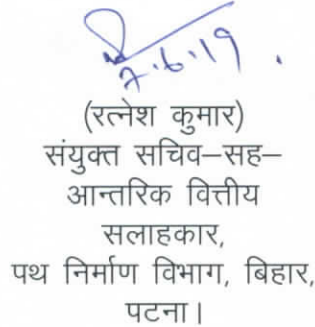 7.6.19
(रत्नेश कुमार)
संयुक्त सचिव–सह–
आन्तरिक वित्तीय
सलाहकार,
पथ निर्माण विभाग, बिहार,
पटना।